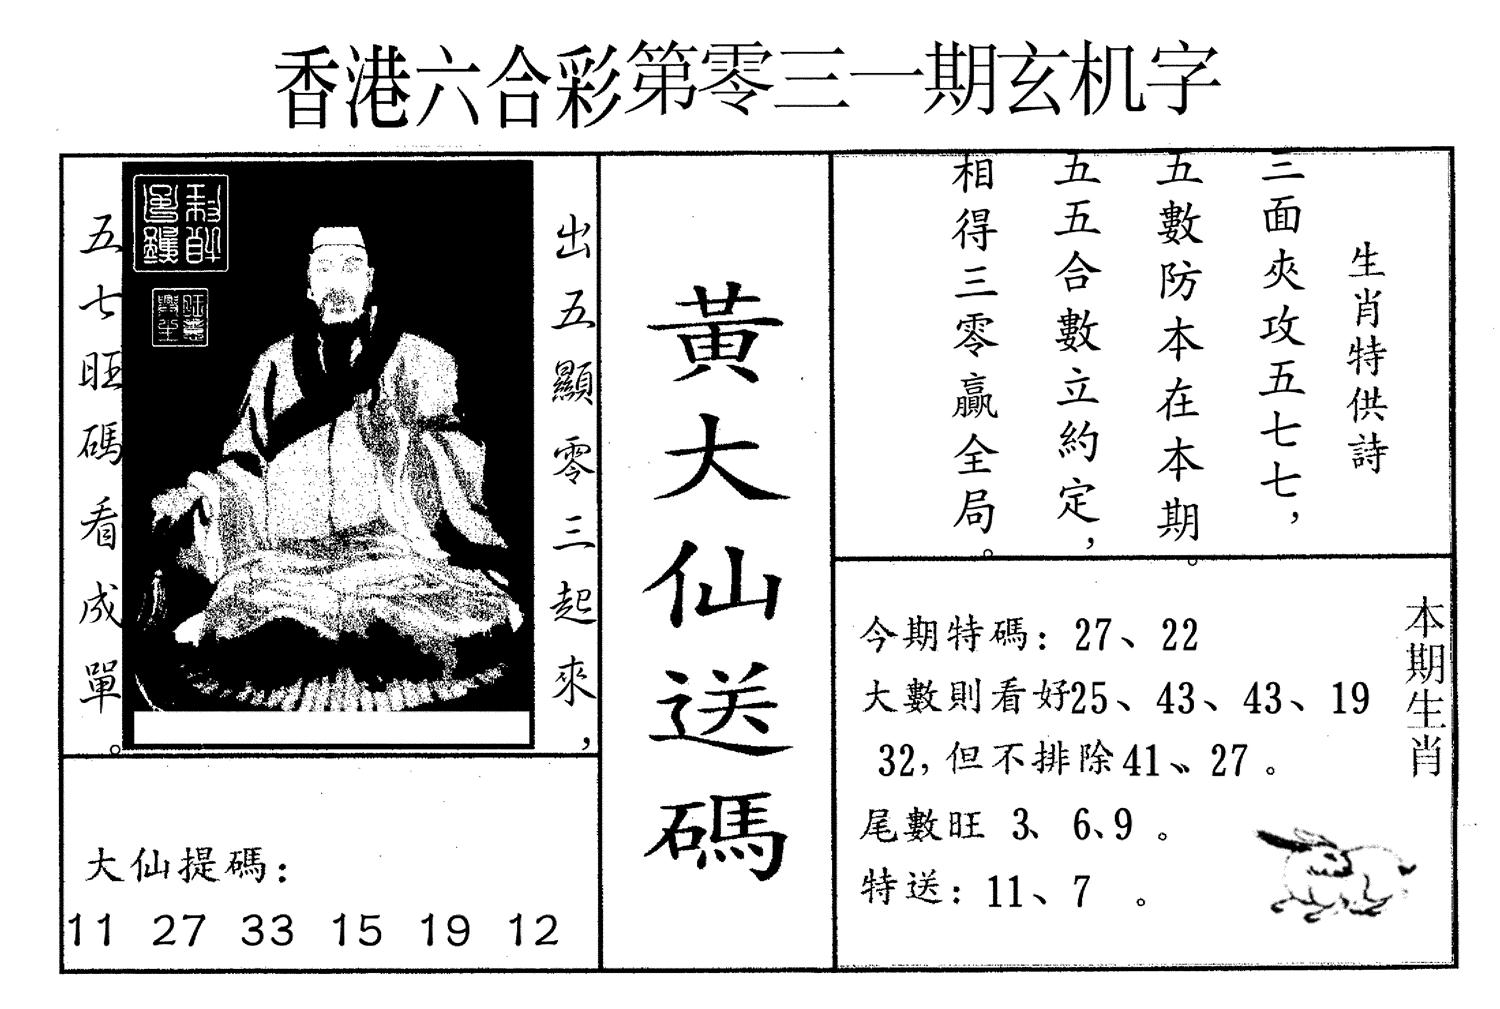 香港六合彩第零三一期玄机字
出五顯零三起來，
五七旺碼看成單。
大仙提碼：
11 27 33 15 19 12
黃大仙送碼
生肖特供詩
三面夾攻五七七，
五數防本在本期。
五五合數立約定，
相得三零贏全局。
本期生肖
今期特碼：27、22
大數則看好25、43、43、19
32，但不排除41、27。
尾數旺 3、6、9。
特送：11、7。